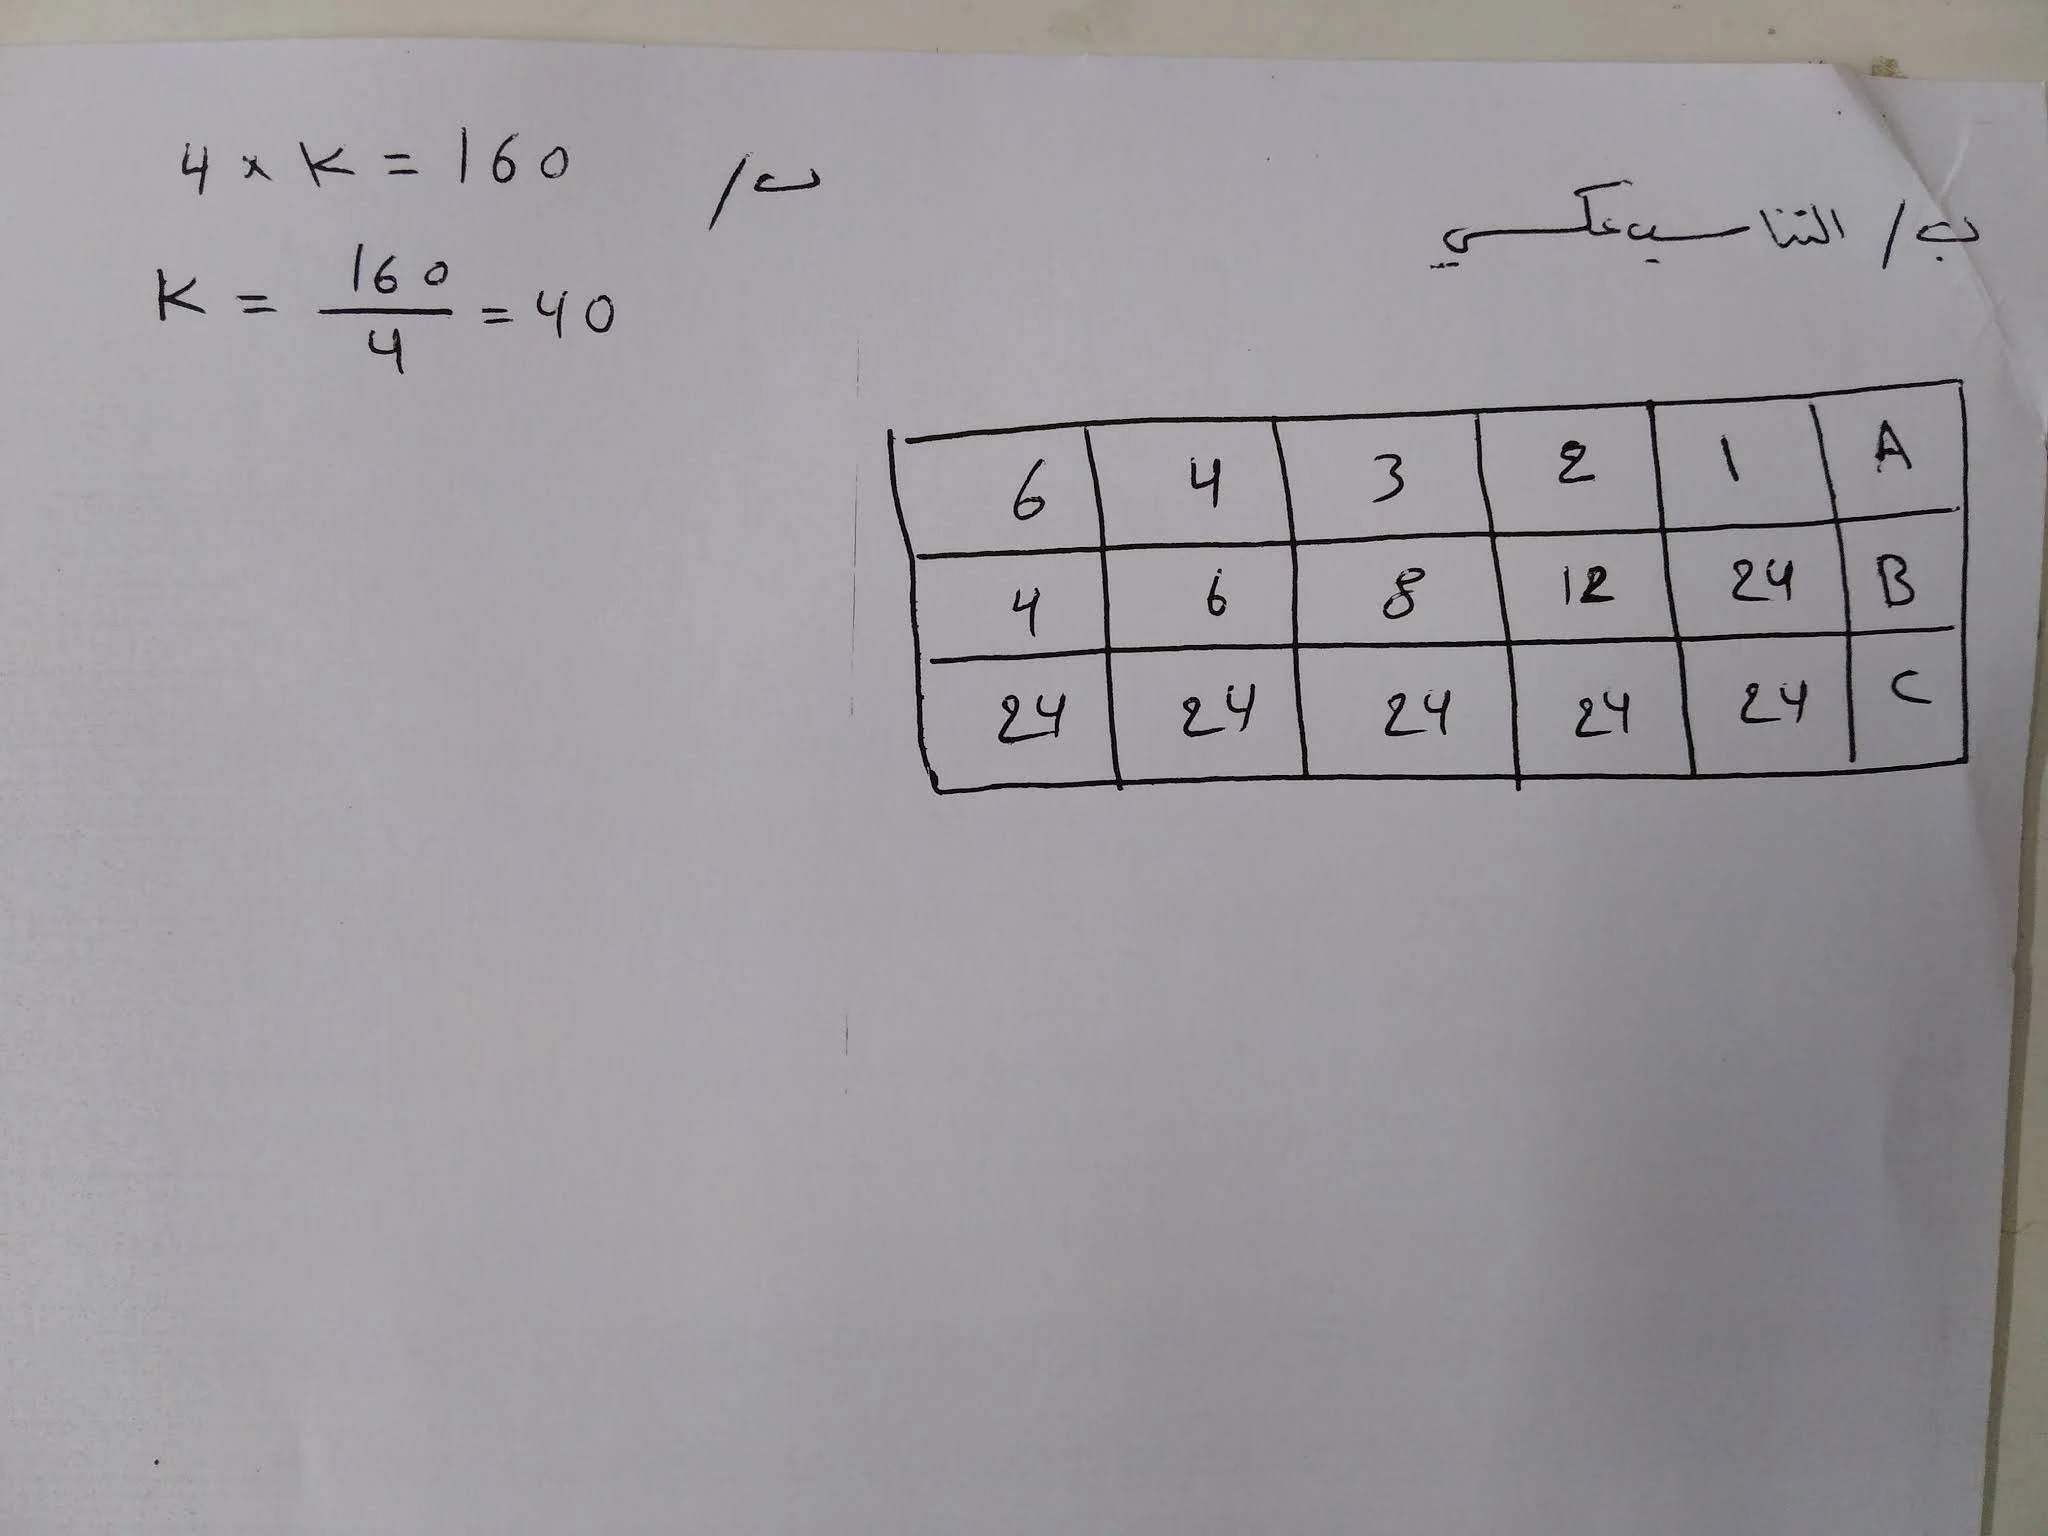 ب/ التناسب عكسي
6 4 3 2 1 A
4 6 8 12 24 B
24 24 24 24 24 C
ب/
4 × K = 160
K = 160/4 = 40